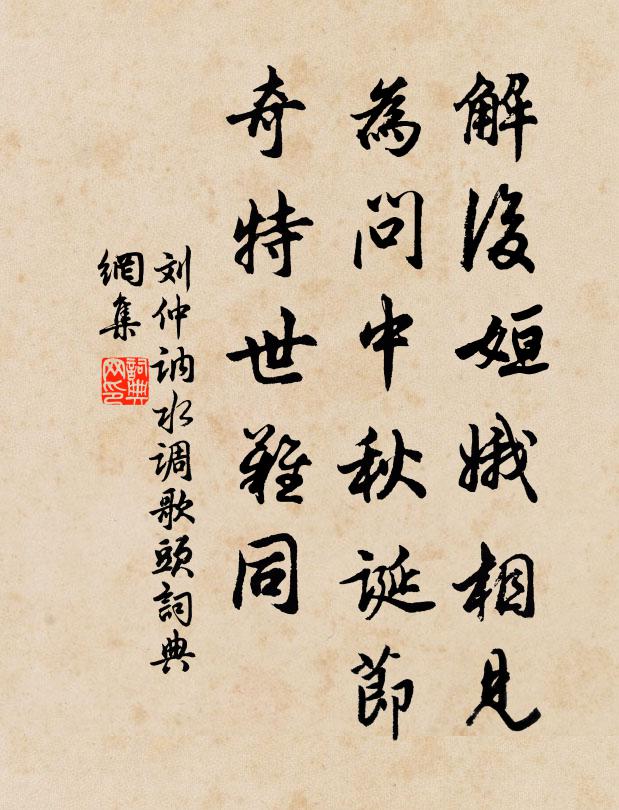 解後姮娥相見
為問中秋誕節
奇特世難同
刘仲讷水调歌頭詞典
網集
詞典
网印